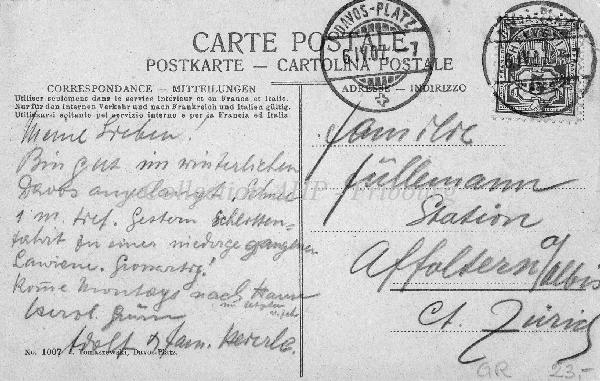 CARTE POSTALE
POSTKARTE — CARTOLINA POSTALE
CORRESPONDANCE — MITTEILUNGEN
Utiliser seulement dans le service intérieur et en France et Italie.
Nur für den internen Verkehr und nach Frankreich und Italien gültig.
Utilizzarsi soltanto pel servizio interno e per la Francia ed Italia.
ADRESSE — INDIRIZZO
DAVOS-PLATZ
6.IV.07. - 7
Meine Lieben!
Bin gut im winterlichen
Davos angelangt. Schnee
1 m. tief. Gestern Schlitten-
fahrt zu einer niedergegangenen
Lawine. Grossartig!
Komme Montags nach Hause
Adolf & Fam.
Familie
Füllemann
Station
Affoltern a/Albis
Ct. Zürich
No. 1007 J. Tomaszewski, Davos-Platz.
GR 23,-